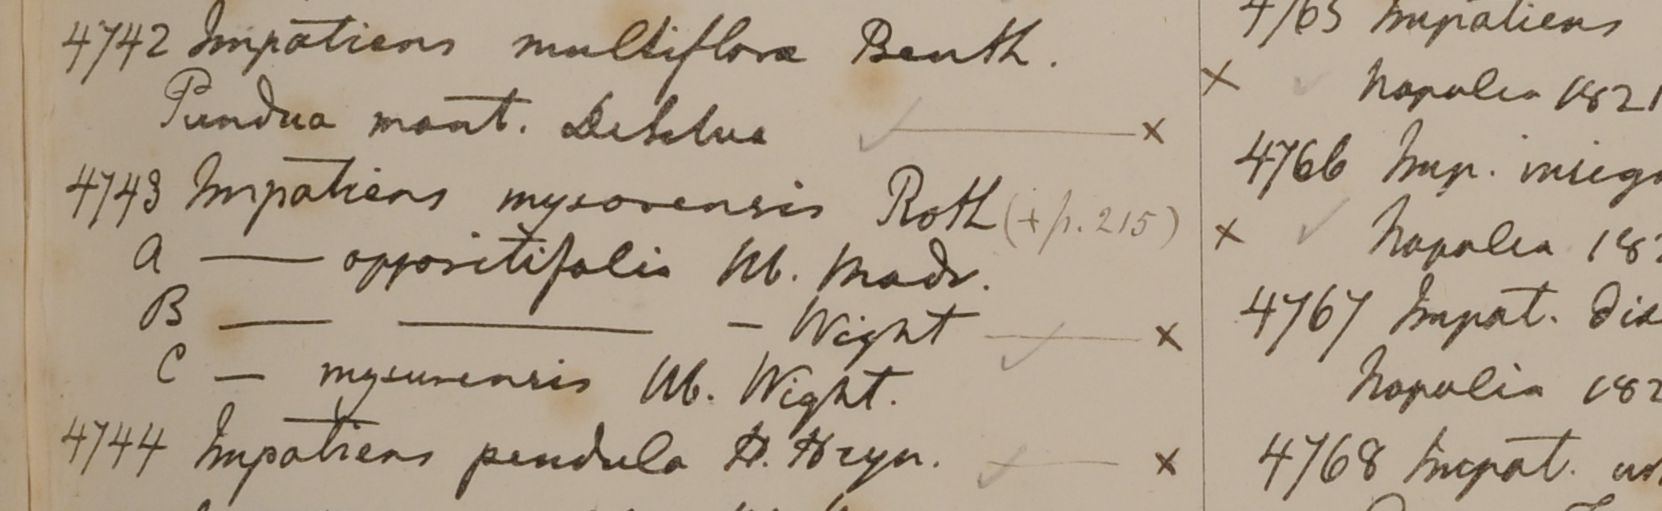 4742 Impatiens multiflora Benth.
Pundua mont. DeSilva
4743 Impatiens mysorensis Roth (+ p. 215)
A — oppositifolia Hb. Madr.
B — — - Wight
C — mysurensis Hb. Wight.
4744 Impatiens pendula H. Heyn.
4765 Impatiens
Napalia 1821
4766 Imp. insign
Napalia 182
4767 Impat. dis
Napalia 182
4768 Impat.